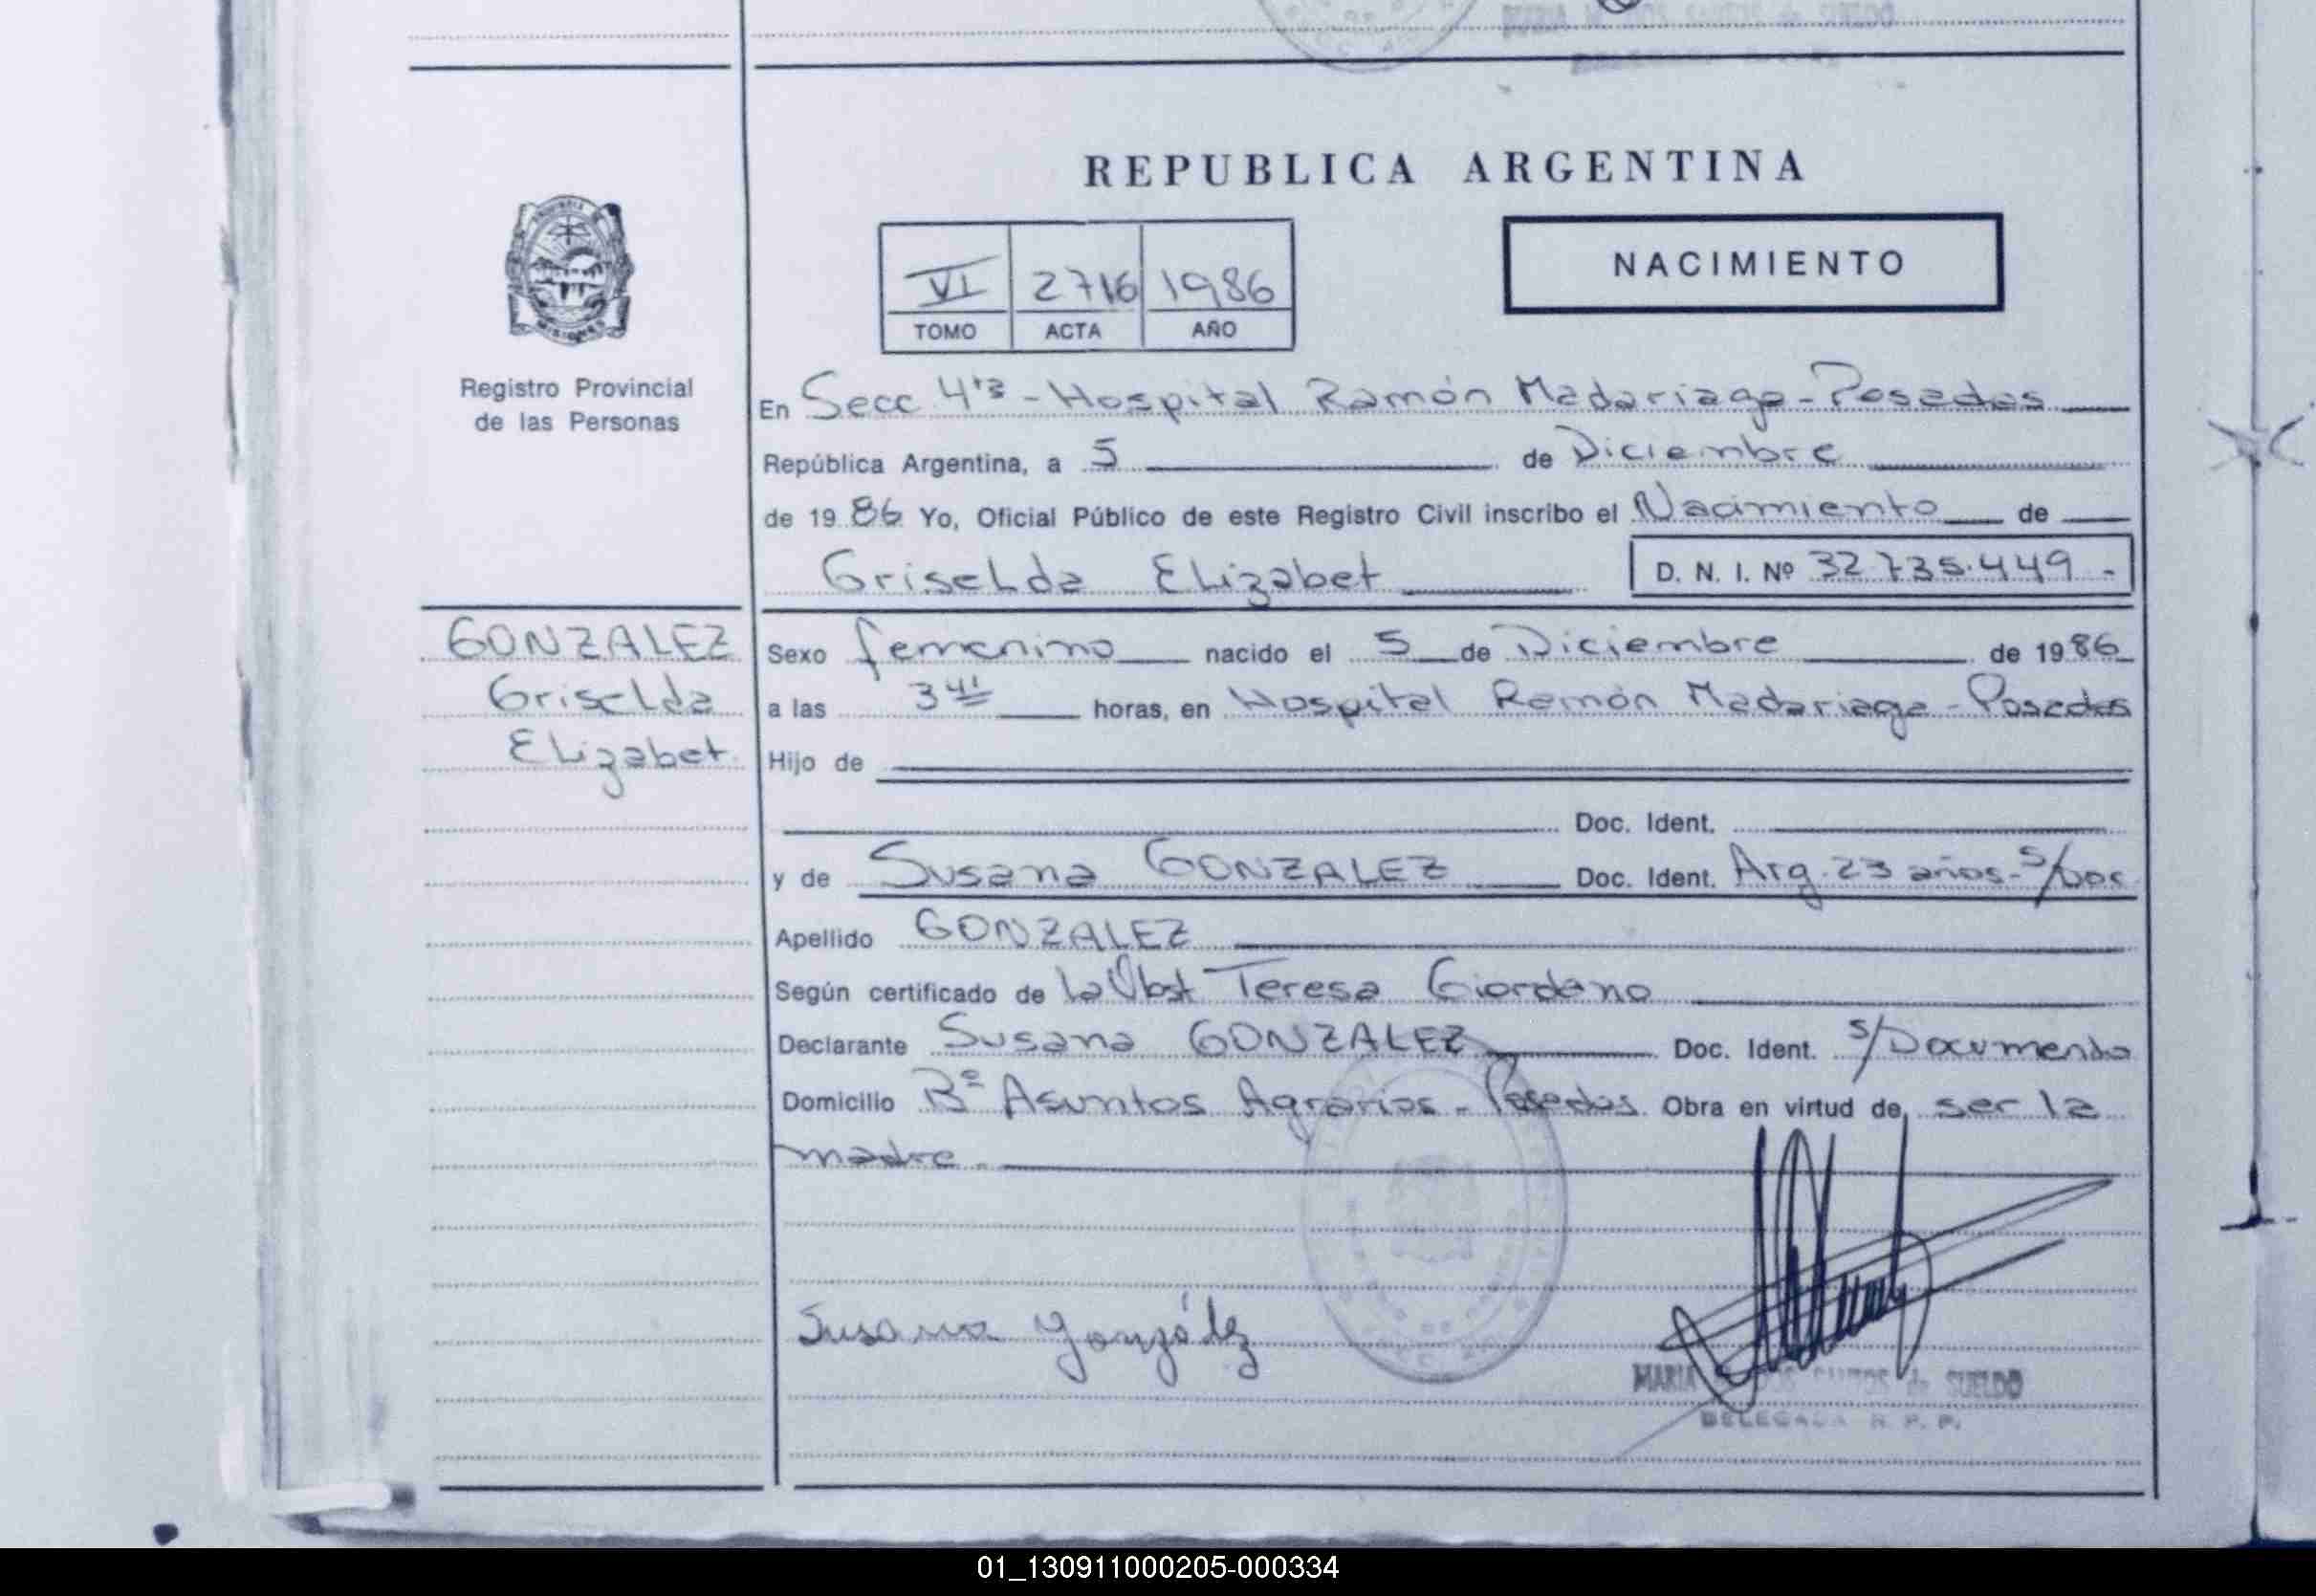 REPUBLICA ARGENTINA
NACIMIENTO
VI 2716 1986
TOMO ACTA AÑO
Registro Provincial
de las Personas
En Secc 4ta - Hospital Ramón Madariaga - Posadas
República Argentina, a 5 de Diciembre
de 1986 Yo, Oficial Público de este Registro Civil inscribo el Nacimiento de
Griselda Elizabet D. N. I. Nº 32.735.449 -
GONZALEZ
Griselda
Elizabet
Sexo femenino nacido el 5 de Diciembre de 1986
a las 3 41 horas, en Hospital Ramón Madariaga - Posadas
Hijo de
Doc. Ident.
y de Susana GONZALEZ Doc. Ident. Arg. 23 años - s/Doc
Apellido GONZALEZ
Según certificado de la Obst Teresa Giordano
Declarante Susana GONZALEZ Doc. Ident. s/Documento
Domicilio Bº Asuntos Agrarios - Posadas Obra en virtud de ser la
madre.
Susana González
MARIA SANTOS de SUELDO
DELEGADA R. P. P.
01_130911000205-000334